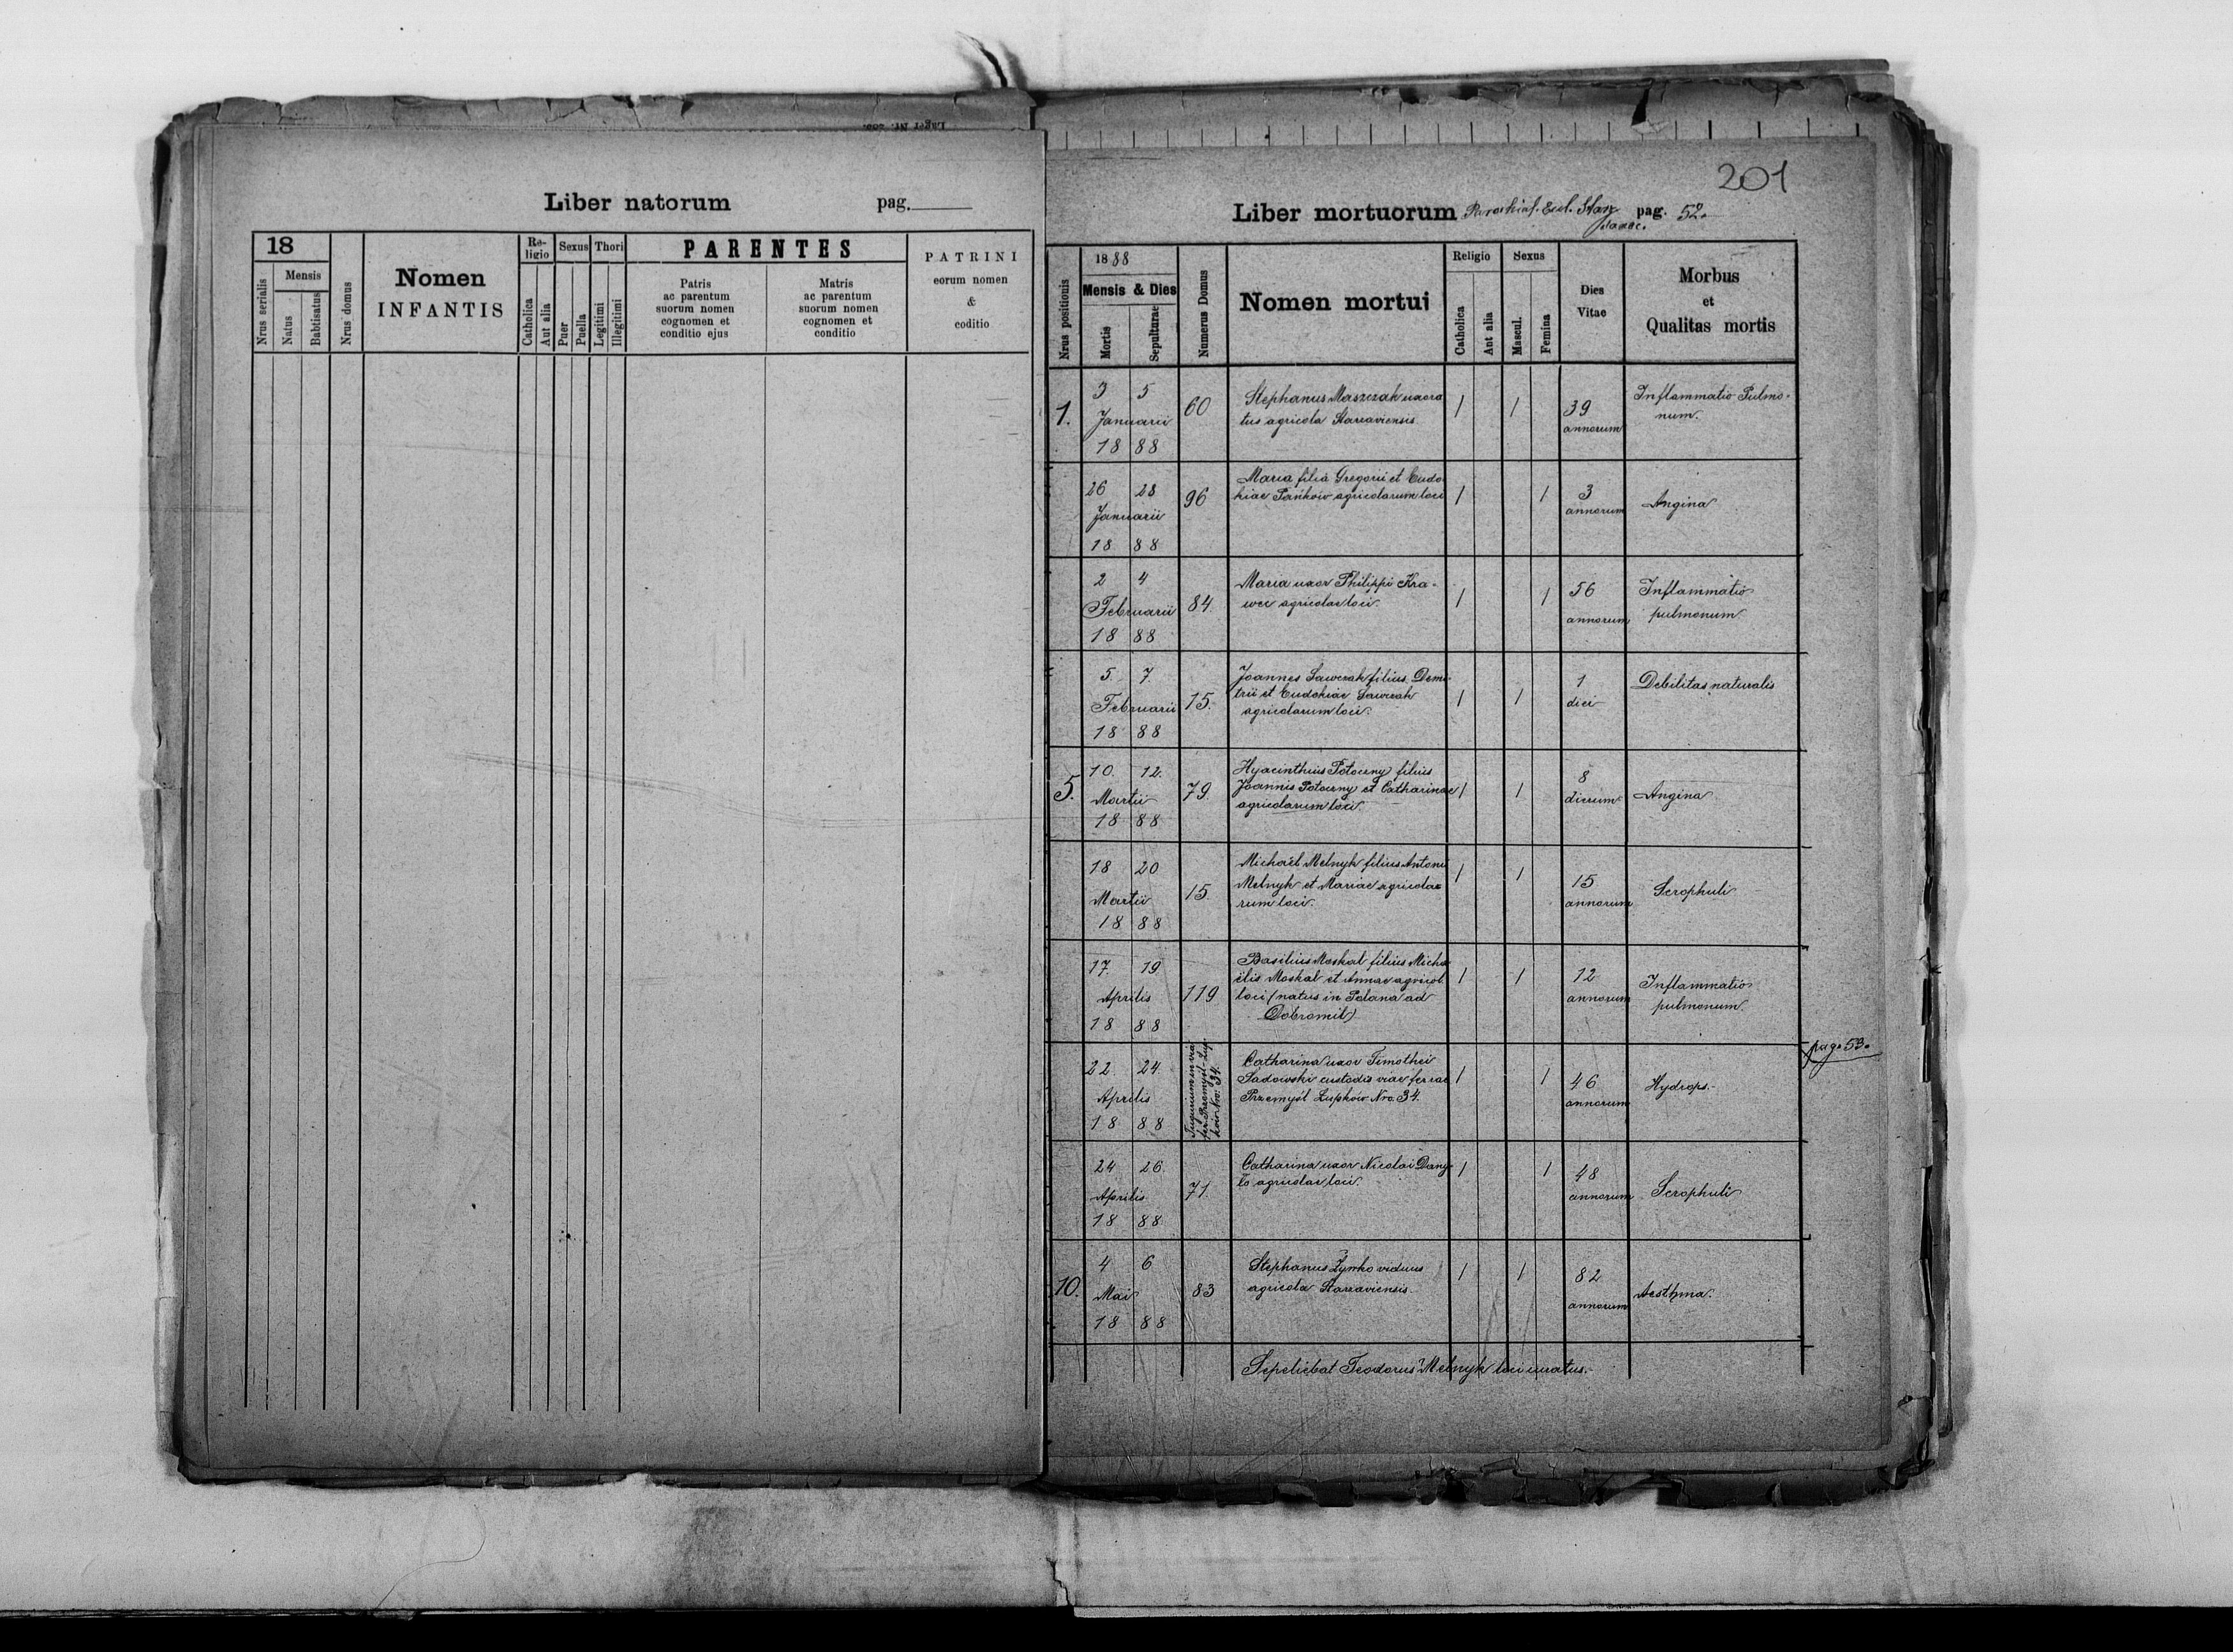 Liber natorum pag.
18
Nrus serialis
Mensis
Natus
Babtisatus
Nrus domus
Nomen
INFANTIS
Re-
ligio
Catholica
Aut alia
Sexus
Puer
Puella
Thori
Legitimi
Illegitimi
PARENTES
Patris
ac parentum
suorum nomen
cognomen et
conditio ejus
Matris
ac parentum
suorum nomen
cognomen et
conditio
PATRINI
eorum nomen
&
coditio
201
Liber mortuorum Parochial. Eccl. pag. 52.
Nrus positionis
1888
Mensis & Dies
Mortis
Sepulturae
Numerus Domus
Nomen mortui
Religio
Catholica
Aut alia
Sexus
Mascul.
Femina
Dies
Vitae
Morbus
et
Qualitas mortis
1.
3 5
Januarii
18 88
60
Stephanus Maszczak uxora
tus agricola Starzaviensis
1 1
39
annorum
Inflammatio Pulmo-
num.
26 28
Januarii
18 88
96
Maria filia Gregorii et Eudo
kiae Pańkow agricolarum loci
1 1
3
annorum
Angina
2 4
Februarii
18 88
84.
Maria uxor Philippi Kra-
wci agricolae loci.
1 1
56
annorum
Inflammatio
pulmonum
5. 7
Februarii
18 88
15.
Joannes Sawczak filius Deme
trii et Eudokiae Sawczak
agricolarum loci.
1 1
1
diei
Debilitas naturalis
5.
10. 12.
Martii
18 88
79.
Hyacinthius Potoczny filius
Joannis Potoczny et Catharinae
agricolarum loci.
1 1
8
dierum
Angina
18 20
Martii
18 88
15.
Michaël Melnyk filius Antonii
Melnyk et Mariae agricola
rum loci.
1 1
15
annorum
Scrophuli
17. 19
Aprilis
18 88
119
Basilius Moskal filius Micha
ëlis Moskal et Annae agricol.
loci (natus in Polana ad
Dobromil)
1 1
12
annorum
Inflammatio
pulmonum.
22. 24.
Aprilis
18 88
Tugurium in via
fer. Przemyśl-Łup-
ków Nro. 34.
Catharina uxor Timothei
Sadowski custodis viae ferrae
Przemyśl Łupków Nro. 34.
1 1
46
annorum
Hydrops.
pag. 53.
24 26.
Aprilis
18 88
71.
Catharina uxor Nicolai Dany
ło agricolae loci
1 1
48
annorum
Scrophuli
10.
4 6
Mai
18 88
83
Stephanus Żyrko viduus
agricola Starzaviensis.
1 1
82
annorum
Aesthma.
Sepeliebat Teodorus Melnyk loci curatus.